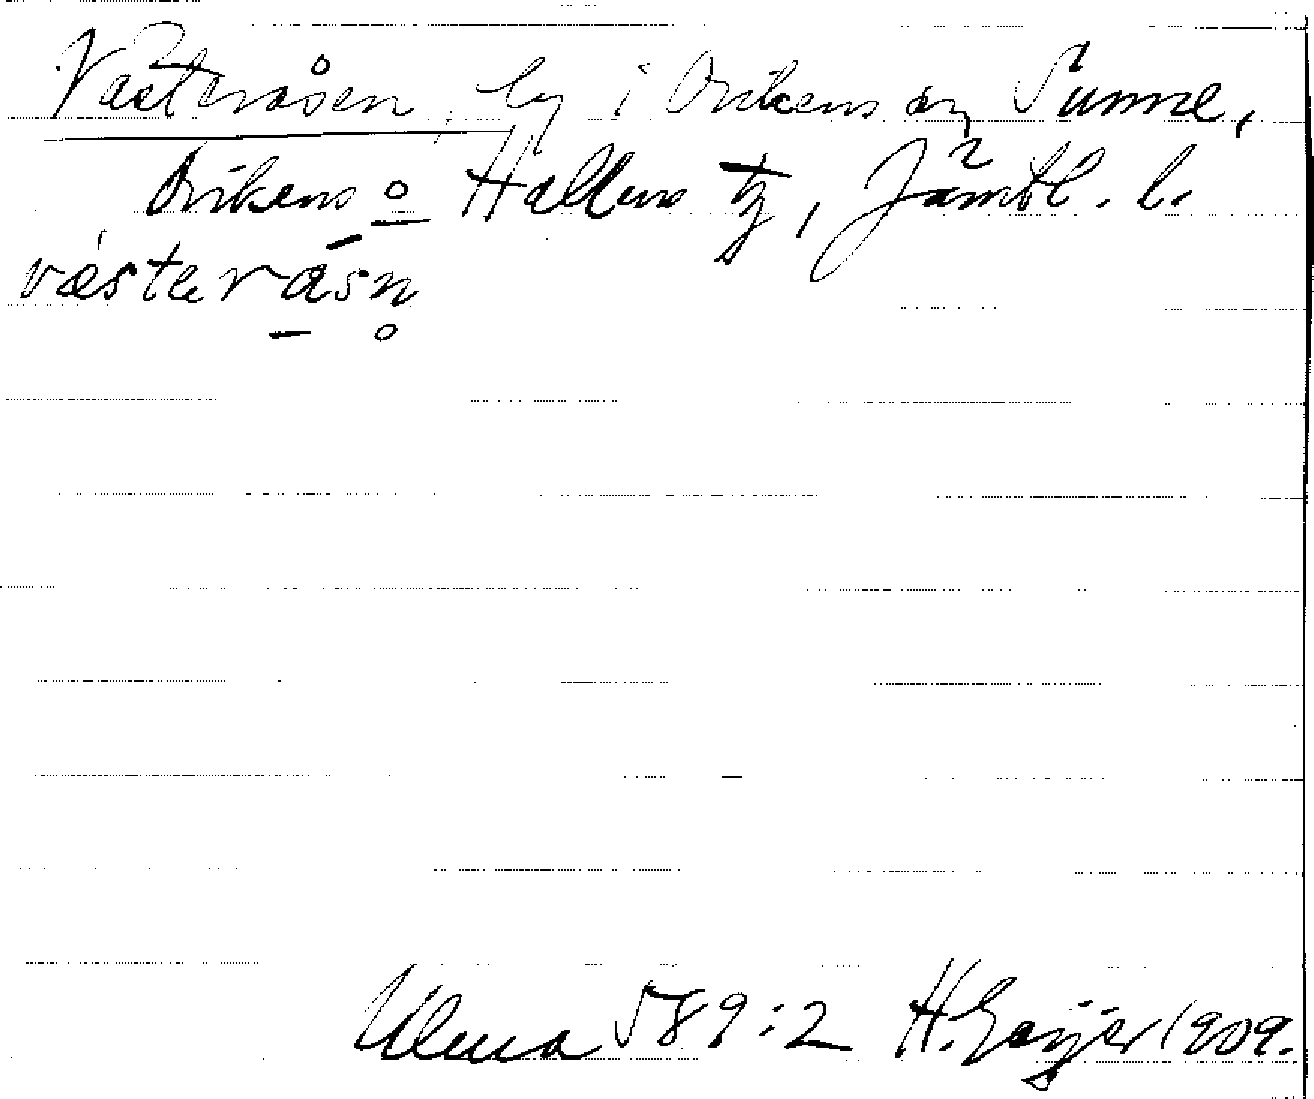 Västeråsen, by i Ovikens sn Sunne,
Ovikens o Hallens tg, Jämtl. l.
västeråsn
Ulma 589:2 H. Geijer 1909.